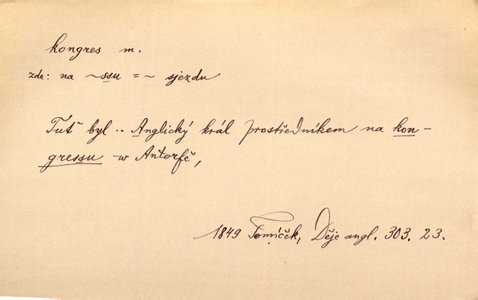 kongres m.
zde: na ~ssu = ~ sjezdu
Tuť byl .. Anglický král prostředníkem na kon-
gressu w Antorfě,
1849 Tomíček, Děje angl. 303. 23.